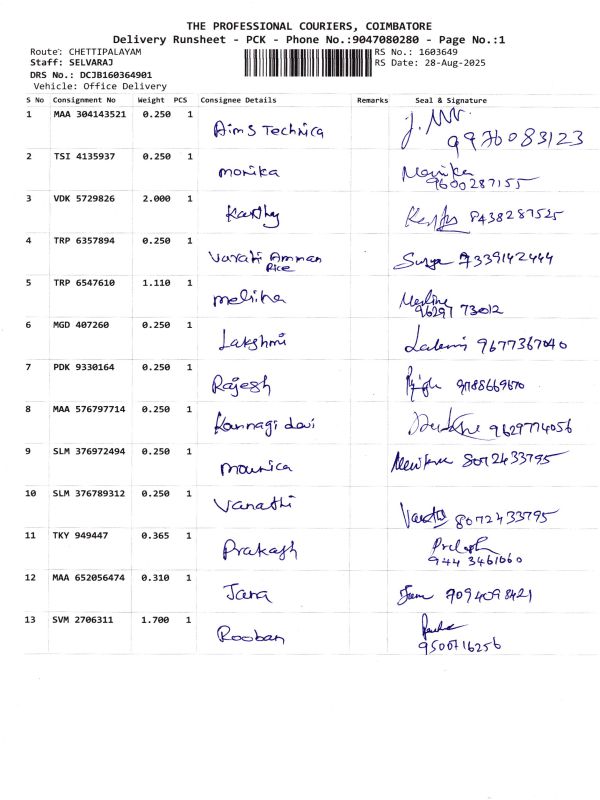 THE PROFESSIONAL COURIERS, COIMBATORE
Delivery Runsheet - PCK - Phone No.:9047080280 - Page No.:1
Route: CHETTIPALAYAM RS No.: 1603649
Staff: SELVARAJ RS Date: 28-Aug-2025
DRS No.: DCJB160364901
Vehicle: Office Delivery
S No Consignment No Weight PCS Consignee Details Remarks Seal & Signature
1 MAA 304143521 0.250 1 Aims Technica
9976083123
2 TSI 4135937 0.250 1 monika Monika
9600287155
3 VDK 5729826 2.000 1 8438287525
4 TRP 6357894 0.250 1 Varati Amman Surya 7339142444
Rice
5 TRP 6547610 1.110 1
96297 73012
6 MGD 407260 0.250 1 Lakshmi 9677367040
7 PDK 9330164 0.250 1 Rajesh
8 MAA 576797714 0.250 1 Kannagi devi 9629774056
9 SLM 376972494 0.250 1 mounica 8072433795
10 SLM 376789312 0.250 1 Vanathi 8072433795
11 TKY 949447 0.365 1 Prakash
944 3461060
12 MAA 652056474 0.310 1 Jara 7094098421
13 SVM 2706311 1.700 1 Rooban
9500716256